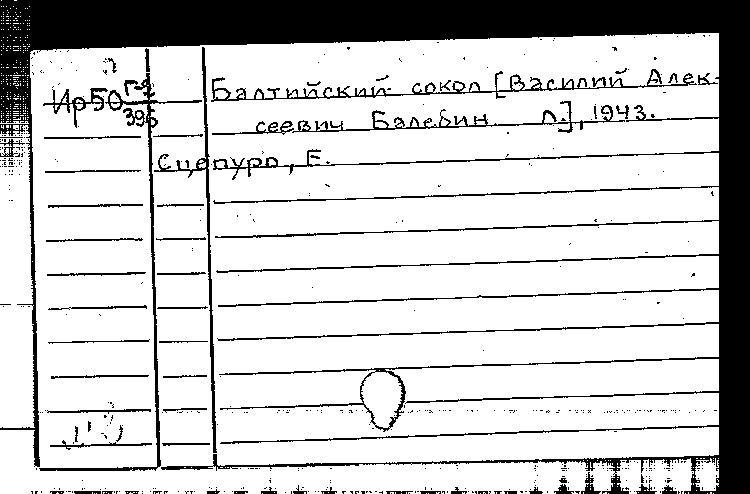 Ир50 Г-2/396
Балтийский сокол [Василий Алек-
сеевич Балебин Л.], 1943.
Сцепуро, Е.